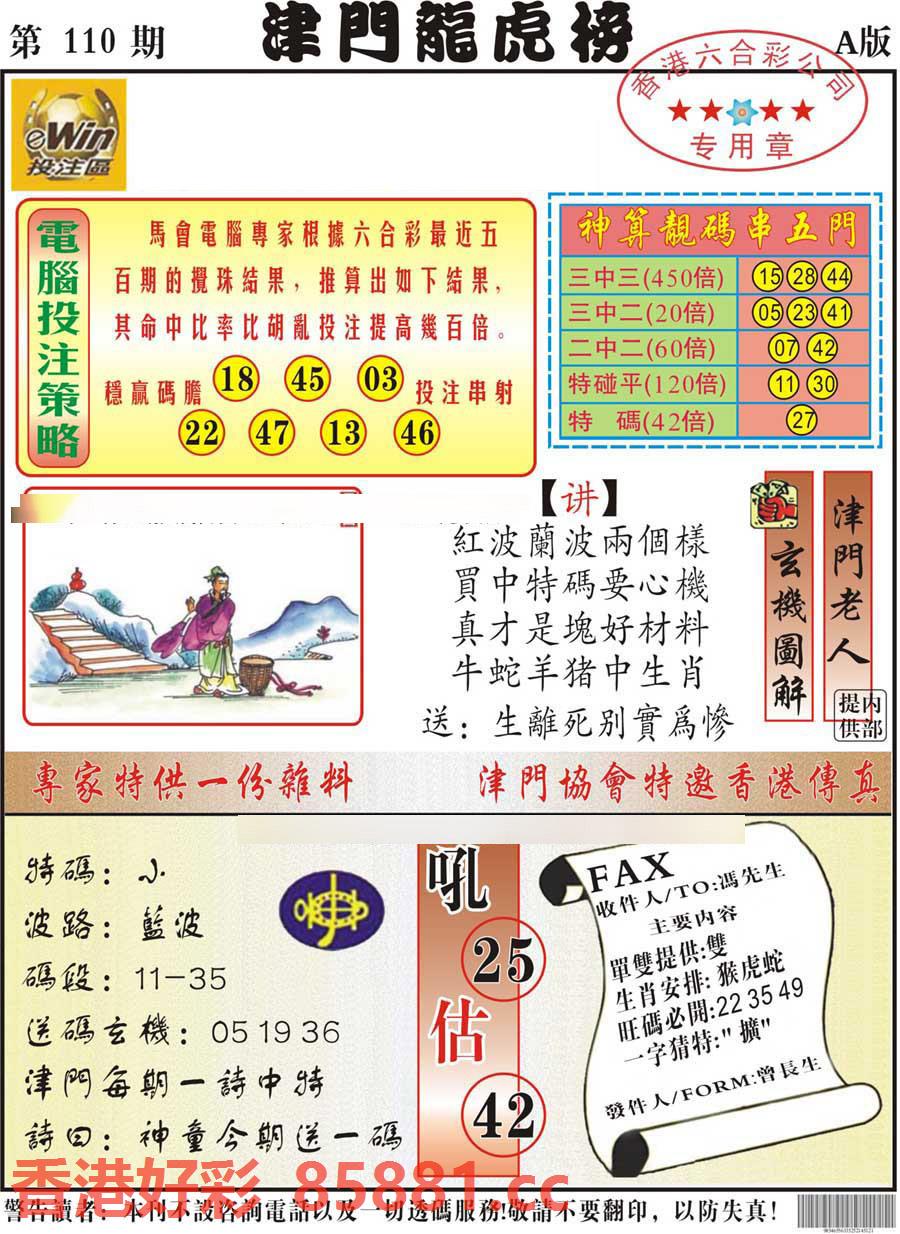 第 110 期
津門龍虎榜
A版
香港六合彩公司
专用章
eWin
投注區
電腦投注策略
馬會電腦專家根據六合彩最近五
百期的攪珠結果，推算出如下結果，
其命中比率比胡亂投注提高幾百倍。
穩贏碼膽 18 45 03 投注串射
22 47 13 46
神算靚碼串五門
三中三(450倍) 15 28 44
三中二(20倍) 05 23 41
二中二(60倍) 07 42
特碰平(120倍) 11 30
特 碼(42倍) 27
【讲】
紅波蘭波兩個樣
買中特碼要心機
真才是塊好材料
牛蛇羊猪中生肖
送：生離死别實爲慘
玄機圖解
津門老人
提内
供部
專家特供一份雜料
津門協會特邀香港傳真
特碼：小
波路：藍波
碼段：11-35
送碼玄機：05 19 36
津門每期一詩中特
詩曰：神童今期送一碼
吼
25
估
42
FAX
收件人/TO:馮先生
主要内容
單雙提供:雙
生肖安排:猴虎蛇
旺碼必開:22 35 49
一字猜特:"擴"
發件人/FORM:曾長生
香港好彩 85881.cc
警告讀者：本刊不設咨詢電話以及一切透碼服務!敬請不要翻印，以防失真!